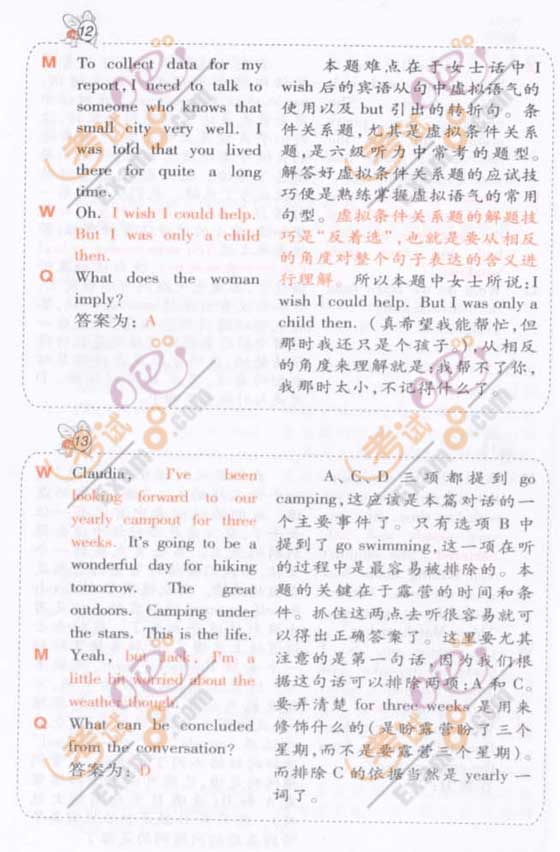 12
M To collect data for my
report, I need to talk to
someone who knows that
small city very well. I
was told that you lived
there for quite a long
time.
W Oh. I wish I could help.
But I was only a child
then.
Q What does the woman
imply?
答案为: A
本题难点在于女士话中 I
wish 后的宾语从句中虚拟语气的
使用以及 but 引出的转折句。条
件关系题,尤其是虚拟条件关系
题,是六级听力中常考的题型。
解答好虚拟条件关系题的应试技
巧便是熟练掌握虚拟语气的常用
句型。虚拟条件关系题的解题技
巧是“反着选”,也就是要从相反
的角度对整个句子表达的含义进
行理解。所以本题中女士所说:I
wish I could help. But I was only a
child then. (真希望我能帮忙,但
那时我还只是个孩子),从相反
的角度来理解就是:我帮不了你,
我那时太小,不记得什么了
13
W Claudia, I've been
looking forward to our
yearly campout for three
weeks. It's going to be a
wonderful day for hiking
tomorrow. The great
outdoors. Camping under
the stars. This is the life.
M Yeah, but Jack, I'm a
little bit worried about the
weather though.
Q What can be concluded
from the conversation?
答案为: D
A、C、D 三项都提到 go
camping,这应该是本篇对话的一
个主要事件了。只有选项 B 中
提到了 go swimming,这一项在听
的过程中是最容易被排除的。本
题的关键在于露营的时间和条
件。抓住这两点去听很容易就可
以得出正确答案了。这里要尤其
注意的是第一句话,因为我们根
据这句话可以排除两项:A 和 C。
要弄清楚 for three weeks 是用来
修饰什么的(是盼露营盼了三个
星期,而不是要露营三个星期)。
而排除 C 的依据当然是 yearly 一
词了。
考试吧
Exam8.com